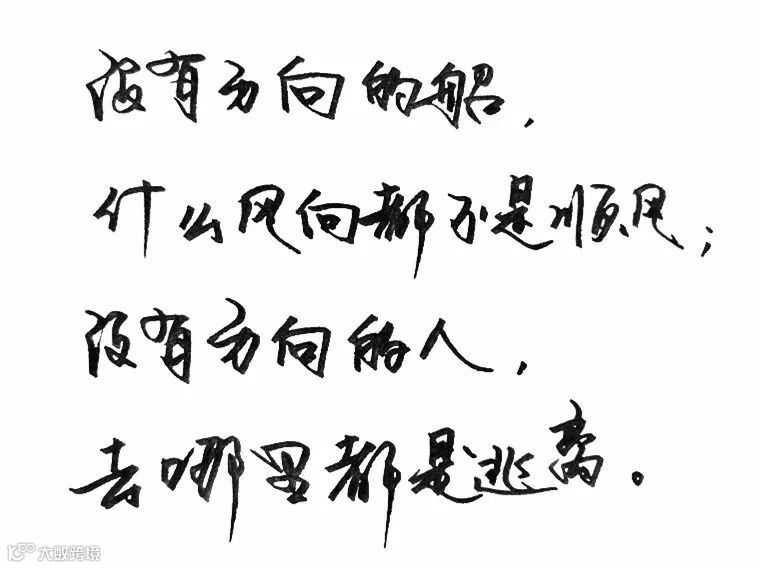 没有方向的船，
什么风向都不是顺风；
没有方向的人，
去哪里都是逃离。
大数跨境